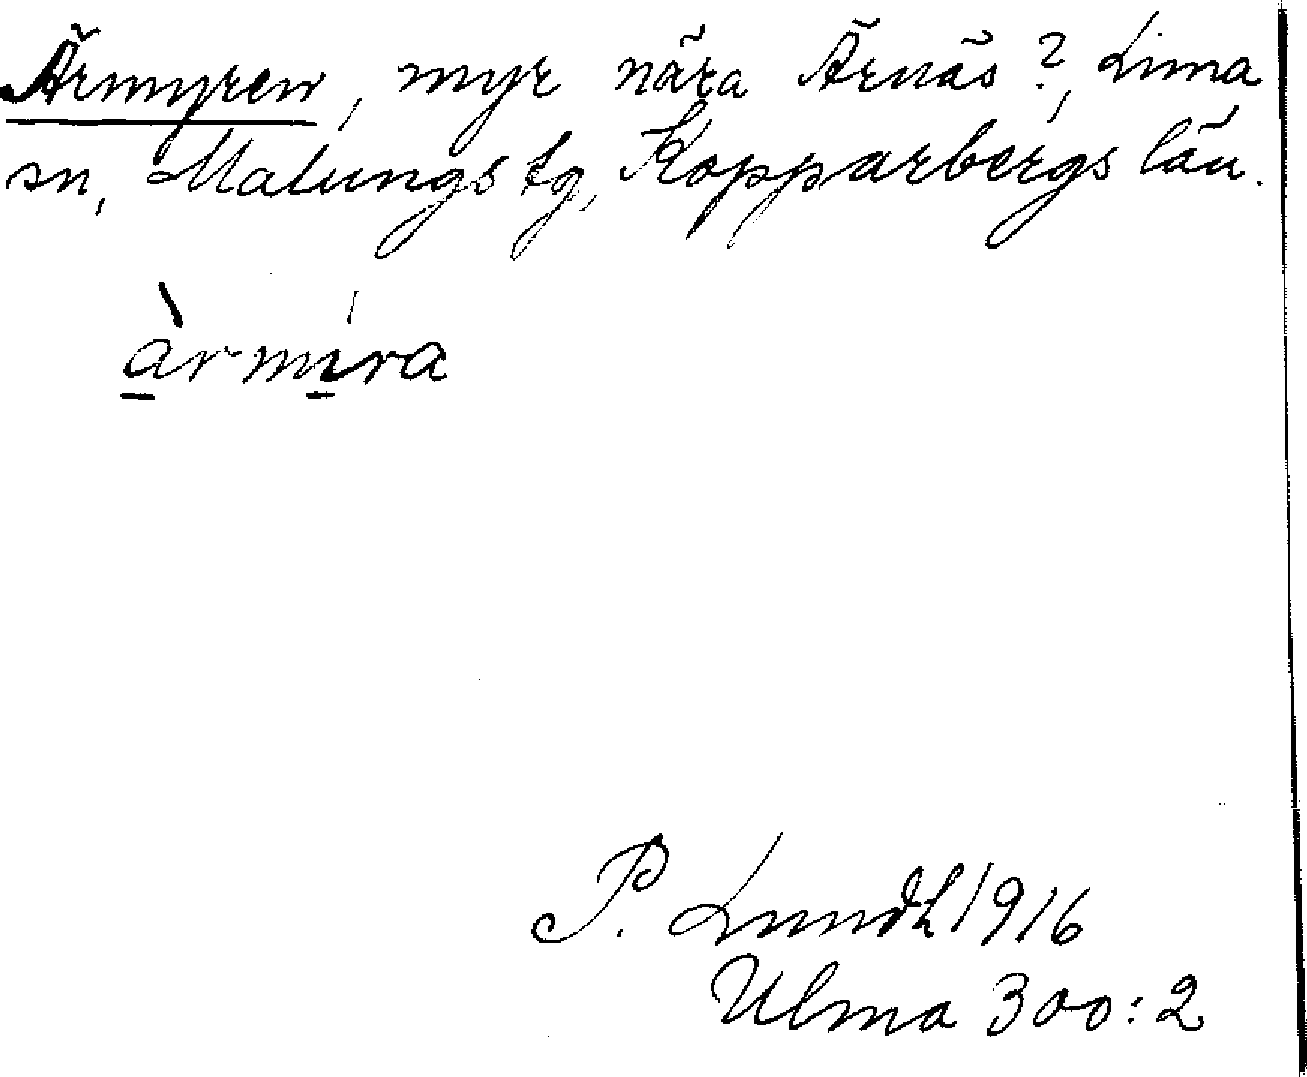 Ärmyren, myr nära Ärnäs?, Lima
sn, Malungs tg, Kopparbergs län.
àrmíra
P. Lundh 1916
Ulma 300:2